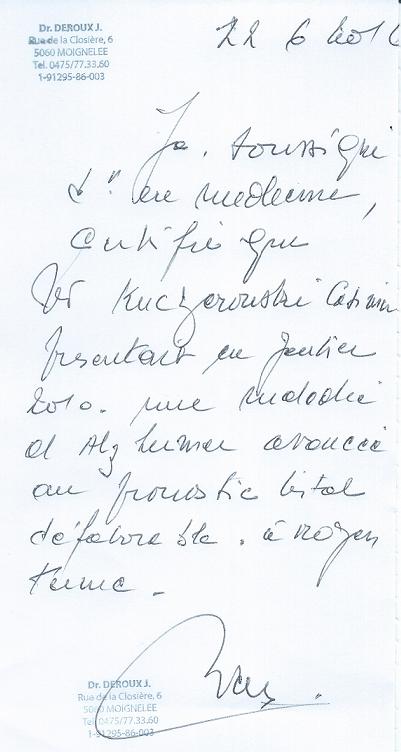 Dr. DEROUX J.
Rue de la Closière, 6
5060 MOIGNELEE
Tel. 0475/77.33.60
1-91295-86-003
22 6 2016
Je, soussigné
Dr en medecine,
certifie que
Mr Kuczarowski Casimir
présentait en Janvier
2010. une maladie
d Alzheimer avancée
au pronostic vital
défavorable. à moyen
terme.
Dr. DEROUX J.
Rue de la Closière, 6
5060 MOIGNELEE
Tel. 0475/77.33.60
1-91295-86-003